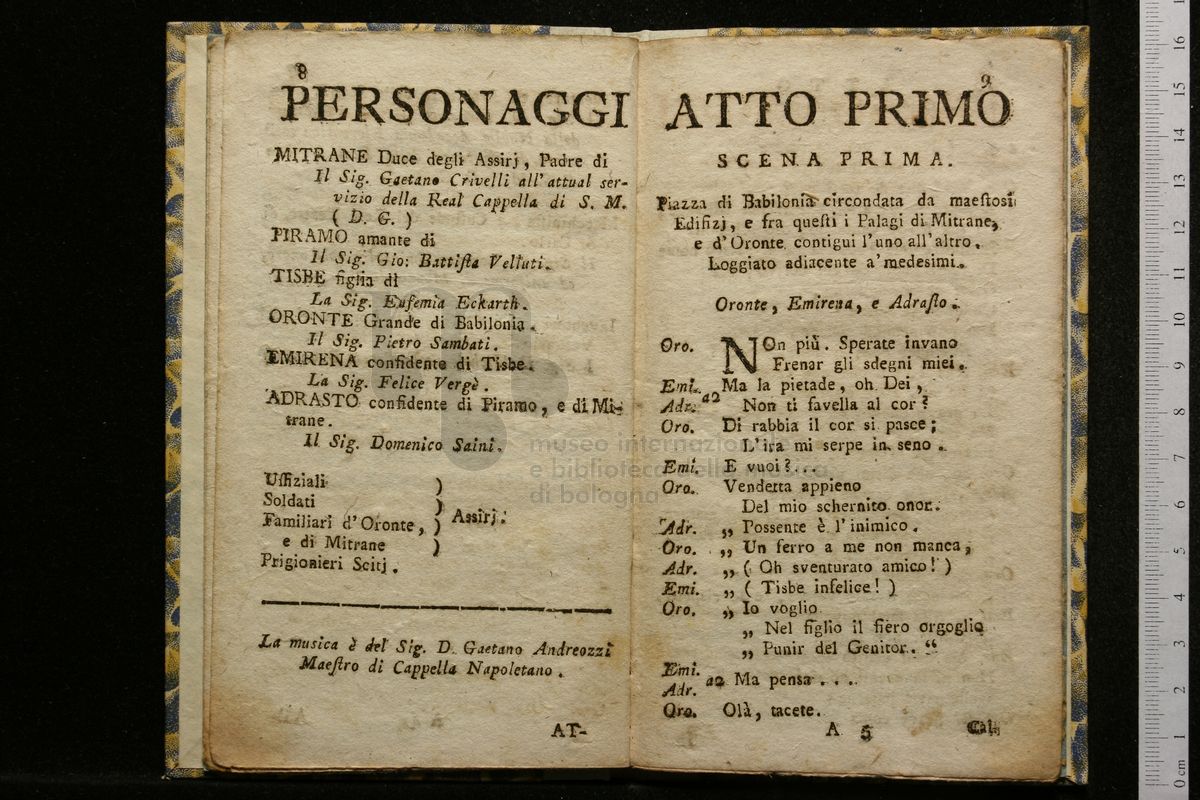 8
PERSONAGGI
MITRANE Duce degli Assirj, Padre di
Il Sig. Gaetano Crivelli all'attual ser-
vizio della Real Cappella di S. M.
( D. G. )
PIRAMO amante di
Il Sig. Gio: Battiſta Velluti.
TISBE figlia di
La Sig. Eufemia Eckarth.
ORONTE Grande di Babilonia.
Il Sig. Pietro Sambati.
EMIRENA confidente di Tisbe.
La Sig. Felice Vergè.
ADRASTO confidente di Piramo, e di Mi-
trane.
Il Sig. Domenico Saini.
Uffiziali )
Soldati )
Familiari d'Oronte, ) Assirj.
e di Mitrane )
Prigionieri Scitj.
La musica è del Sig. D. Gaetano Andreozzi
Maeſtro di Cappella Napoletano.
AT-
9
ATTO PRIMO
SCENA PRIMA.
Piazza di Babilonia circondata da maeſtosi
Edifizj, e fra queſti i Palagi di Mitrane,
e d'Oronte contigui l'uno all'altro.
Loggiato adiacente a'medesimi.
Oronte, Emirena, e Adraſto.
Oro. NOn più. Sperate invano
Frenar gli sdegni miei.
Emi. Ma la pietade, oh Dei,
Adr. a2 Non ti favella al cor?
Oro. Di rabbia il cor si pasce;
L'ira mi serpe in seno.
Emi. E vuoi?...
Oro. Vendetta appieno
Del mio schernito onor.
Adr. „ Possente è l'inimico.
Oro. „ Un ferro a me non manca,
Adr. „ ( Oh sventurato amico! )
Emi. „ ( Tisbe infelice! )
Oro. „ Io voglio
„ Nel figlio il fiero orgoglio
„ Punir del Genitor. “
Emi.
Adr. a2 Ma pensa . . . .
Oro. Olà, tacete.
A 5 Cal-
museo internazionale
e biblioteca della musica
di bologna
0 cm 1 2 3 4 5 6 7 8 9 10 11 12 13 14 15 16